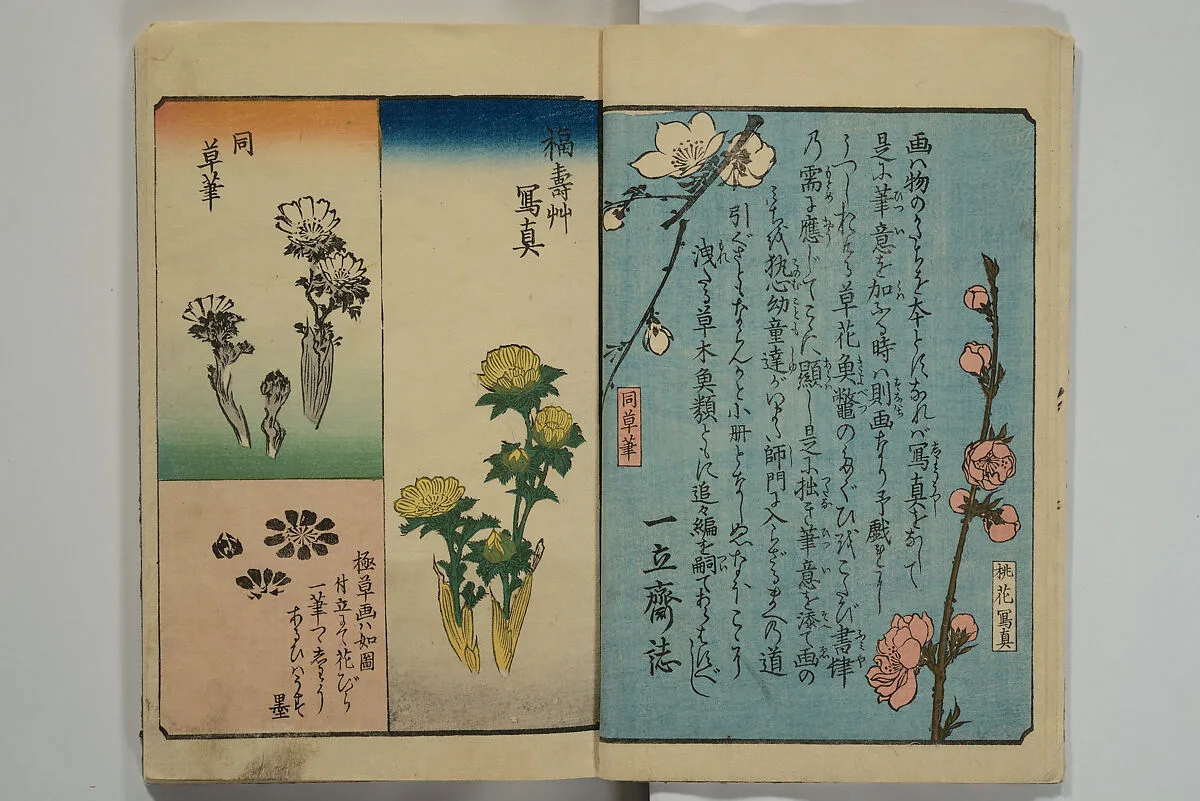 桃花寫真
画ハ物のかたちを本とすなれバ寫真をなして
是に筆意を加ふる時ハ則画なり予戯に
うつしおける草花魚鼈のたぐひをこたび書肆
乃需に應じてこゝに顕し是に拙き筆意を添て画の
みちを執心幼童達がいまだ師門に入らざるまへの道
引ぐさともならんかと小册となしぬなほこゝに
洩たる草木魚類ともに追々編を嗣てあらはすべし
一立齋誌
同草筆
福壽艸
寫真
同
草筆
極草画ハ如圖
付立にて花びら
一筆つゝ
あるひハうす
墨